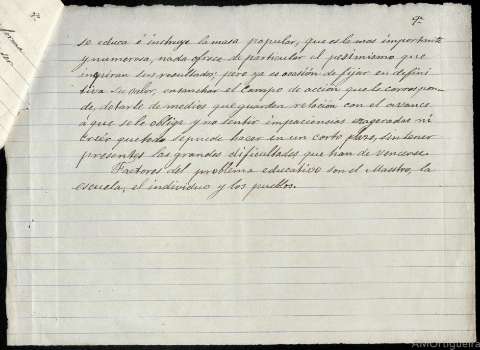 9ª
se educa é instruye la masa popular, que es la mas importante
y numerosa, nada ofrece de particular el pesimismo que
inspiran sus resultados; pero ya es ocasión de fijar en defini-
tiva su valor, ensanchar el campo de acción que le correspon-
de, dotarle de medios que guarden relación con el avance
á que se le obliga y no sentir impaciencias exageradas ni
creér que todo se puede hacer en un corto plazo, sin tener
presentes las grandes dificultades que han de vencerse.
Factores del problema educativo son el Maestro, la
escuela, el individuo y los pueblos.
AMOrtigueira